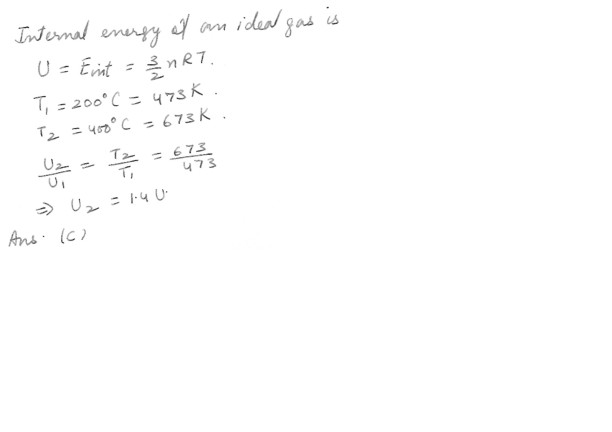 Internal energy of an ideal gas is
U = Eint = 3/2 nRT.
T₁ = 200°C = 473K.
T₂ = 400°C = 673K.
U₂/U₁ = T₂/T₁ = 673/473
⇒ U₂ = 1.4 U.
Ans. (C)